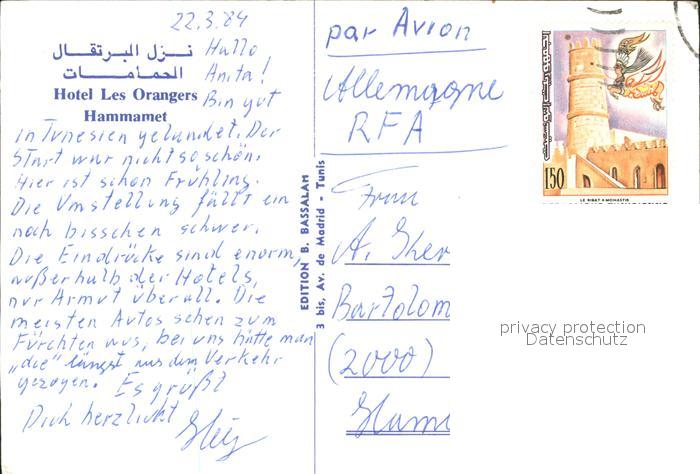 22.3.84
Hallo
Anita!
Bin gut
نزل البرتقال
الحمامات
Hotel Les Orangers
Hammamet
in Tunesien gelandet. Der
Start war nicht so schön.
Hier ist schon Frühling.
Die Umstellung fällt ein
noch bisschen schwer.
Die Eindrücke sind enorm,
außerhalb der Hotels,
nur Armut überall. Die
meisten Autos sehen zum
Fürchten aus, bei uns hätte man
"die" längst aus dem Verkehr
gezogen. Es grüßt
Dich herzlichst
EDITION B. BASSALAH
3 bis, Av. de Madrid - Tunis
par Avion
Allemagne
RFA
Frau
A.
Bartolom
(2000)
Ham
150
LE RIBAT A MONASTIR
privacy protection
Datenschutz